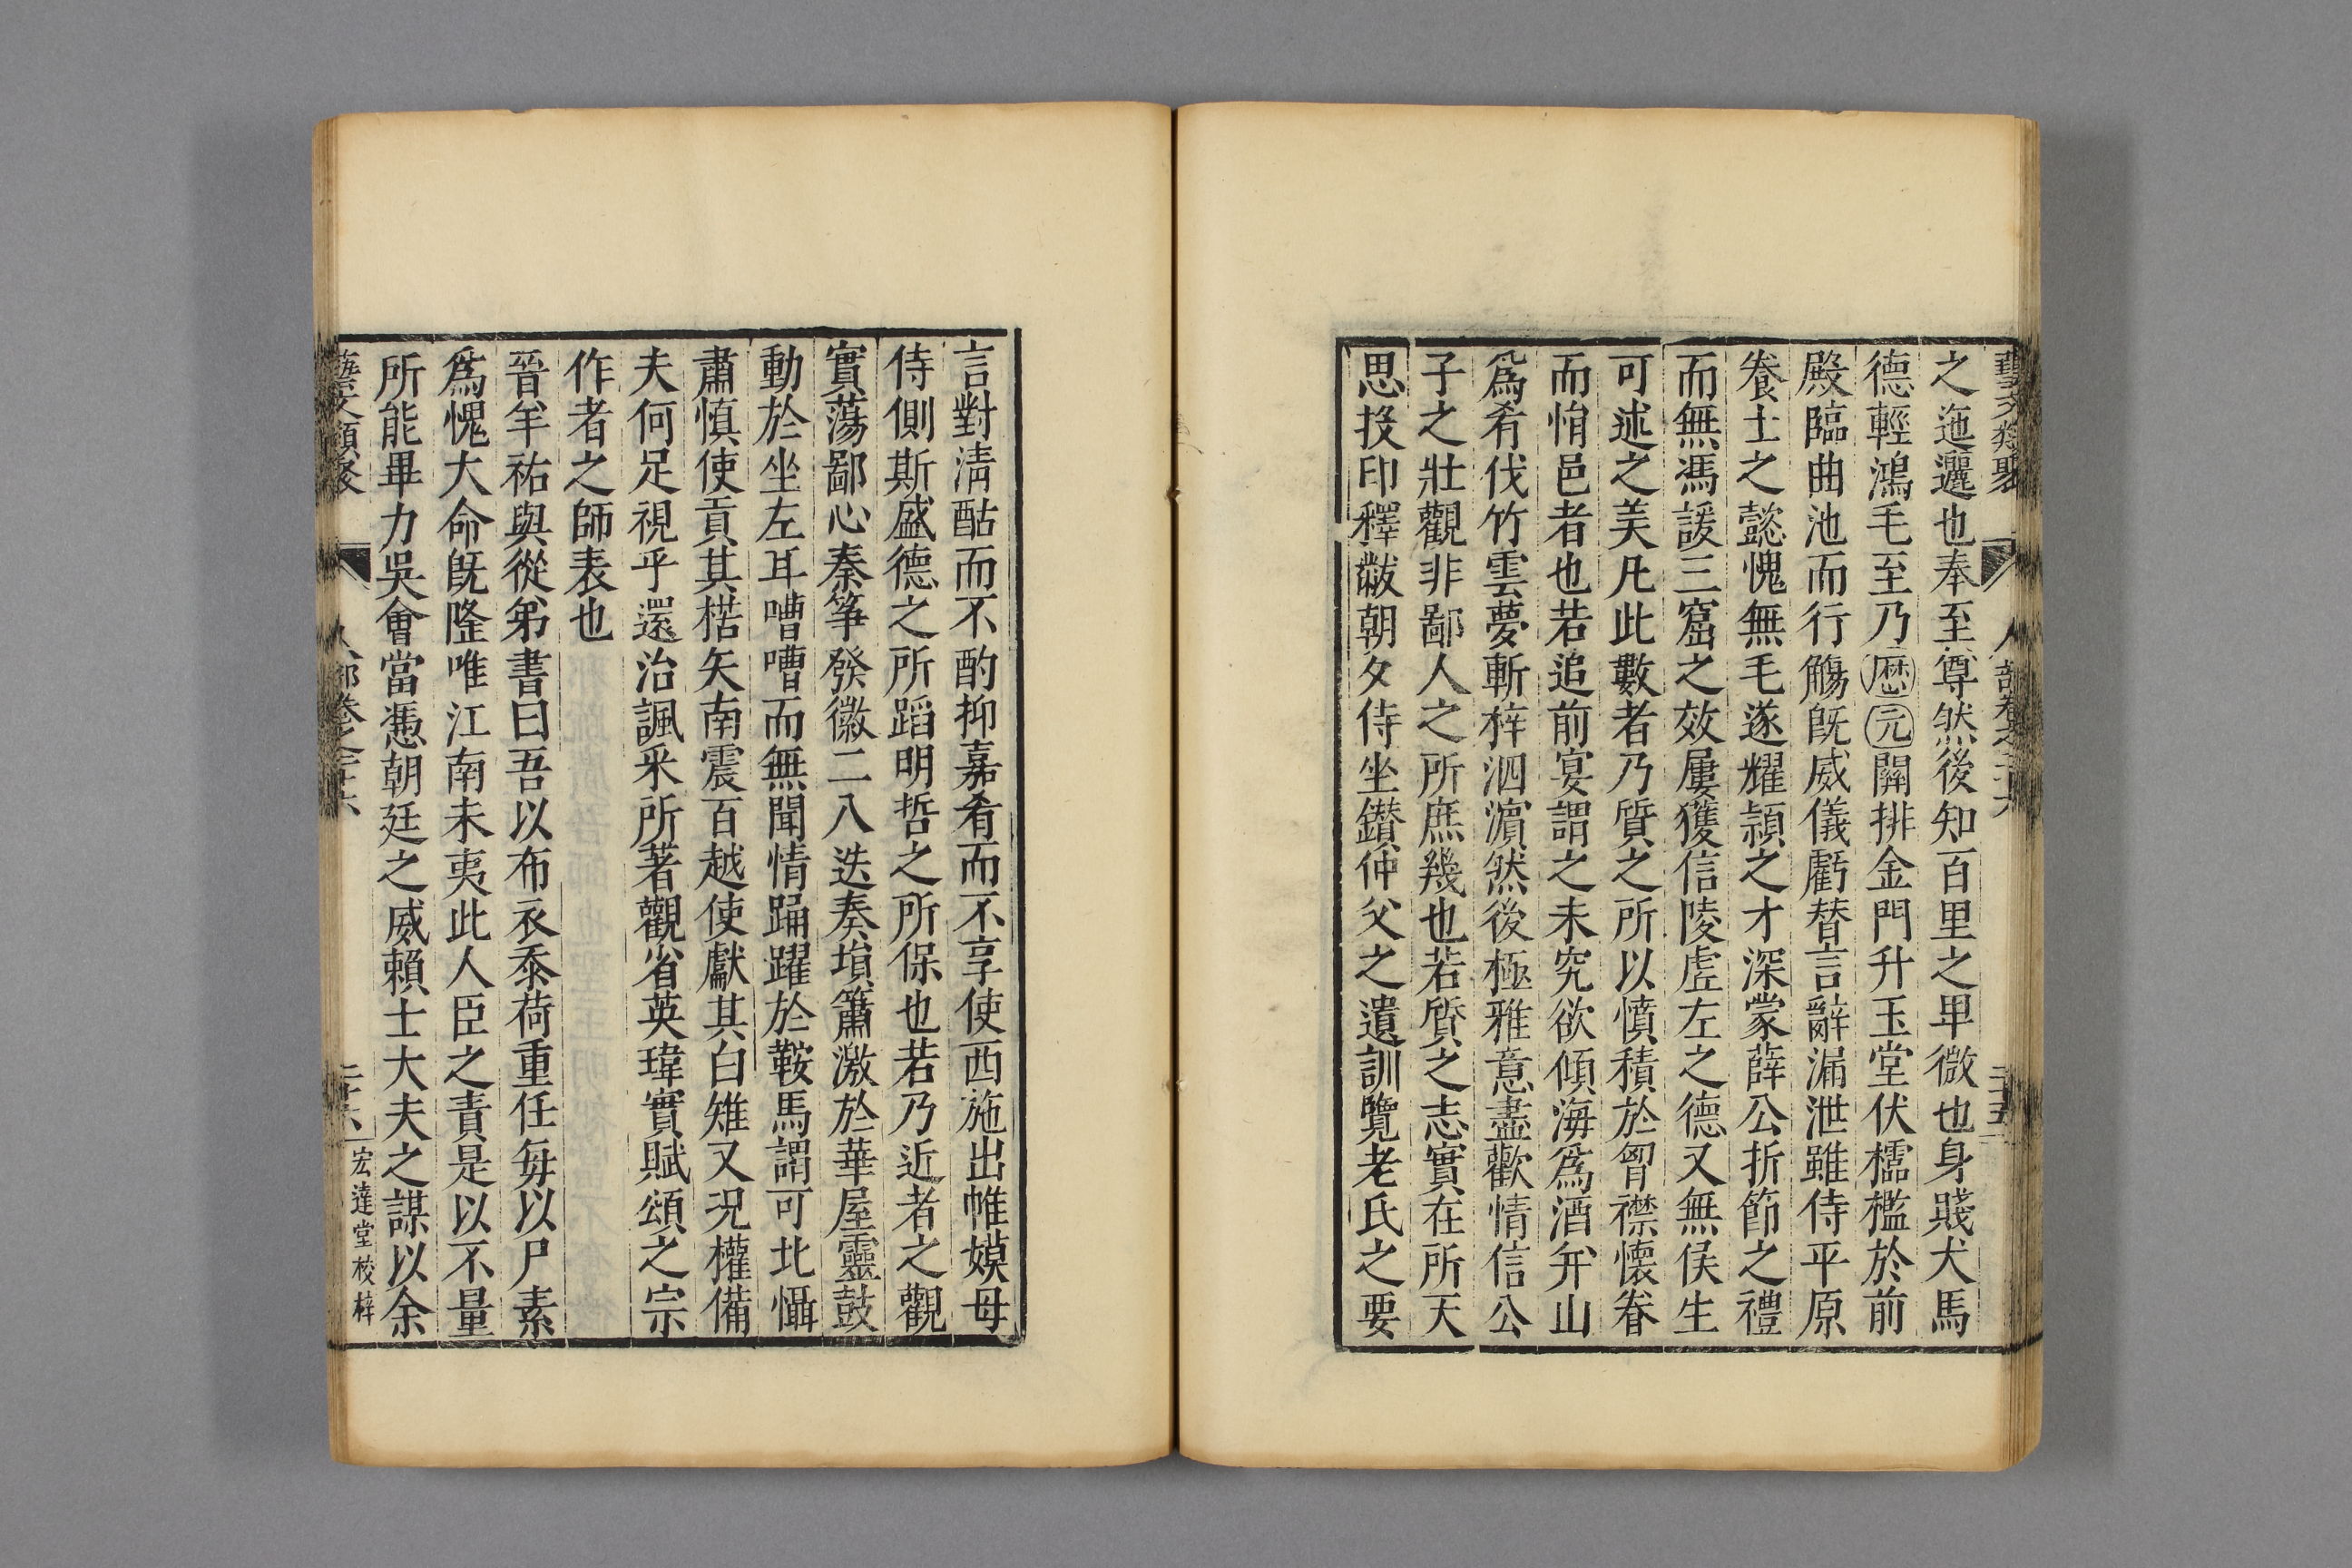 藝文類聚 人部卷之二十六 二十五
之迤邐也奉至尊然後知百里之卑微也身賤犬馬
德輕鴻毛至乃歷元闕排金門升玉堂伏櫺檻於前
殿臨曲池而行觴旣威儀虧替言辭漏泄雖侍平原
養士之懿愧無毛遂耀穎之才深蒙薛公折節之禮
而無馮諼三窟之效屢獲信陵虛左之德又無侯生
可述之美凡此數者乃質之所以憤積於胷襟懷眷
而悁邑者也若追前宴謂之未究欲傾海爲酒幷山
爲肴伐竹雲夢斬梓泗濵然後極雅意盡歡情信公
子之壯觀非鄙人之所庶幾也若質之志實在所天
思投印釋黻朝夕侍坐鑽仲父之遺訓覽老氏之要
言對淸酤而不酌抑嘉肴而不享使西施出帷嫫母
侍側斯盛德之所蹈明哲之所保也若乃近者之觀
實蕩鄙心秦箏發徽二八迭奏塤簫激於華屋靈鼓
動於坐左耳嘈嘈而無聞情踊躍於鞍馬謂可北懾
肅愼使貢其楛矢南震百越使獻其白雉又况權備
夫何足視乎還治諷采所著觀省英瑋實賦頌之宗
作者之師表也
晉羊祐與從弟書曰吾以布衣忝荷重任每以尸素
爲愧大命旣隆唯江南未夷此人臣之責是以不量
所能畢力吳會當憑朝廷之威賴士大夫之謀以余
藝文類聚 人部卷之二十六 二十六 宏達堂校梓